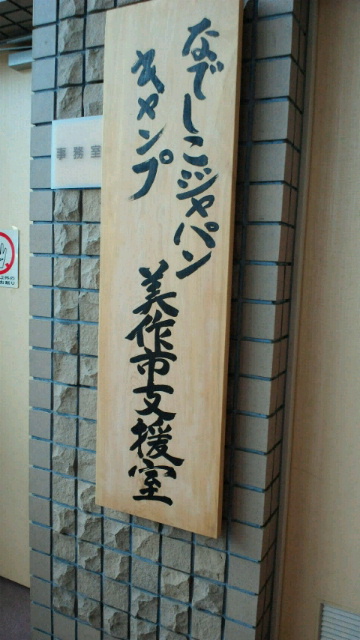 なでしこジャパン
キャンプ
美作市支援室
事務室